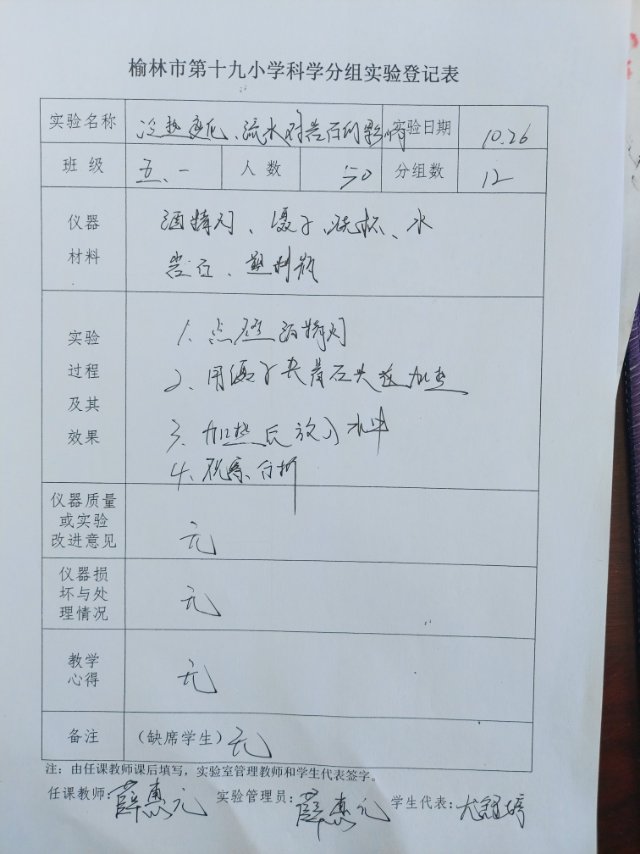 榆林市第十九小学科学分组实验登记表
实验名称 冷热变化、流水对岩石的影响 实验日期 10.26
班级 五.一 人数 50 分组数 12
仪器 酒精灯、镊子、烧杯、水
材料 岩石、塑料瓶
实验 1. 点燃酒精灯
过程 2. 用镊子夹岩石 加热
及其 3. 加热后放 水中
效果 4. 观察分析
仪器质量
或实验
改进意见 无
仪器损
坏与处 无
理情况
教学
心得 无
备注 (缺席学生) 无
注:由任课教师课后填写,实验室管理教师和学生代表签字。
任课教师:薛惠元 实验管理员:薛惠元 学生代表: